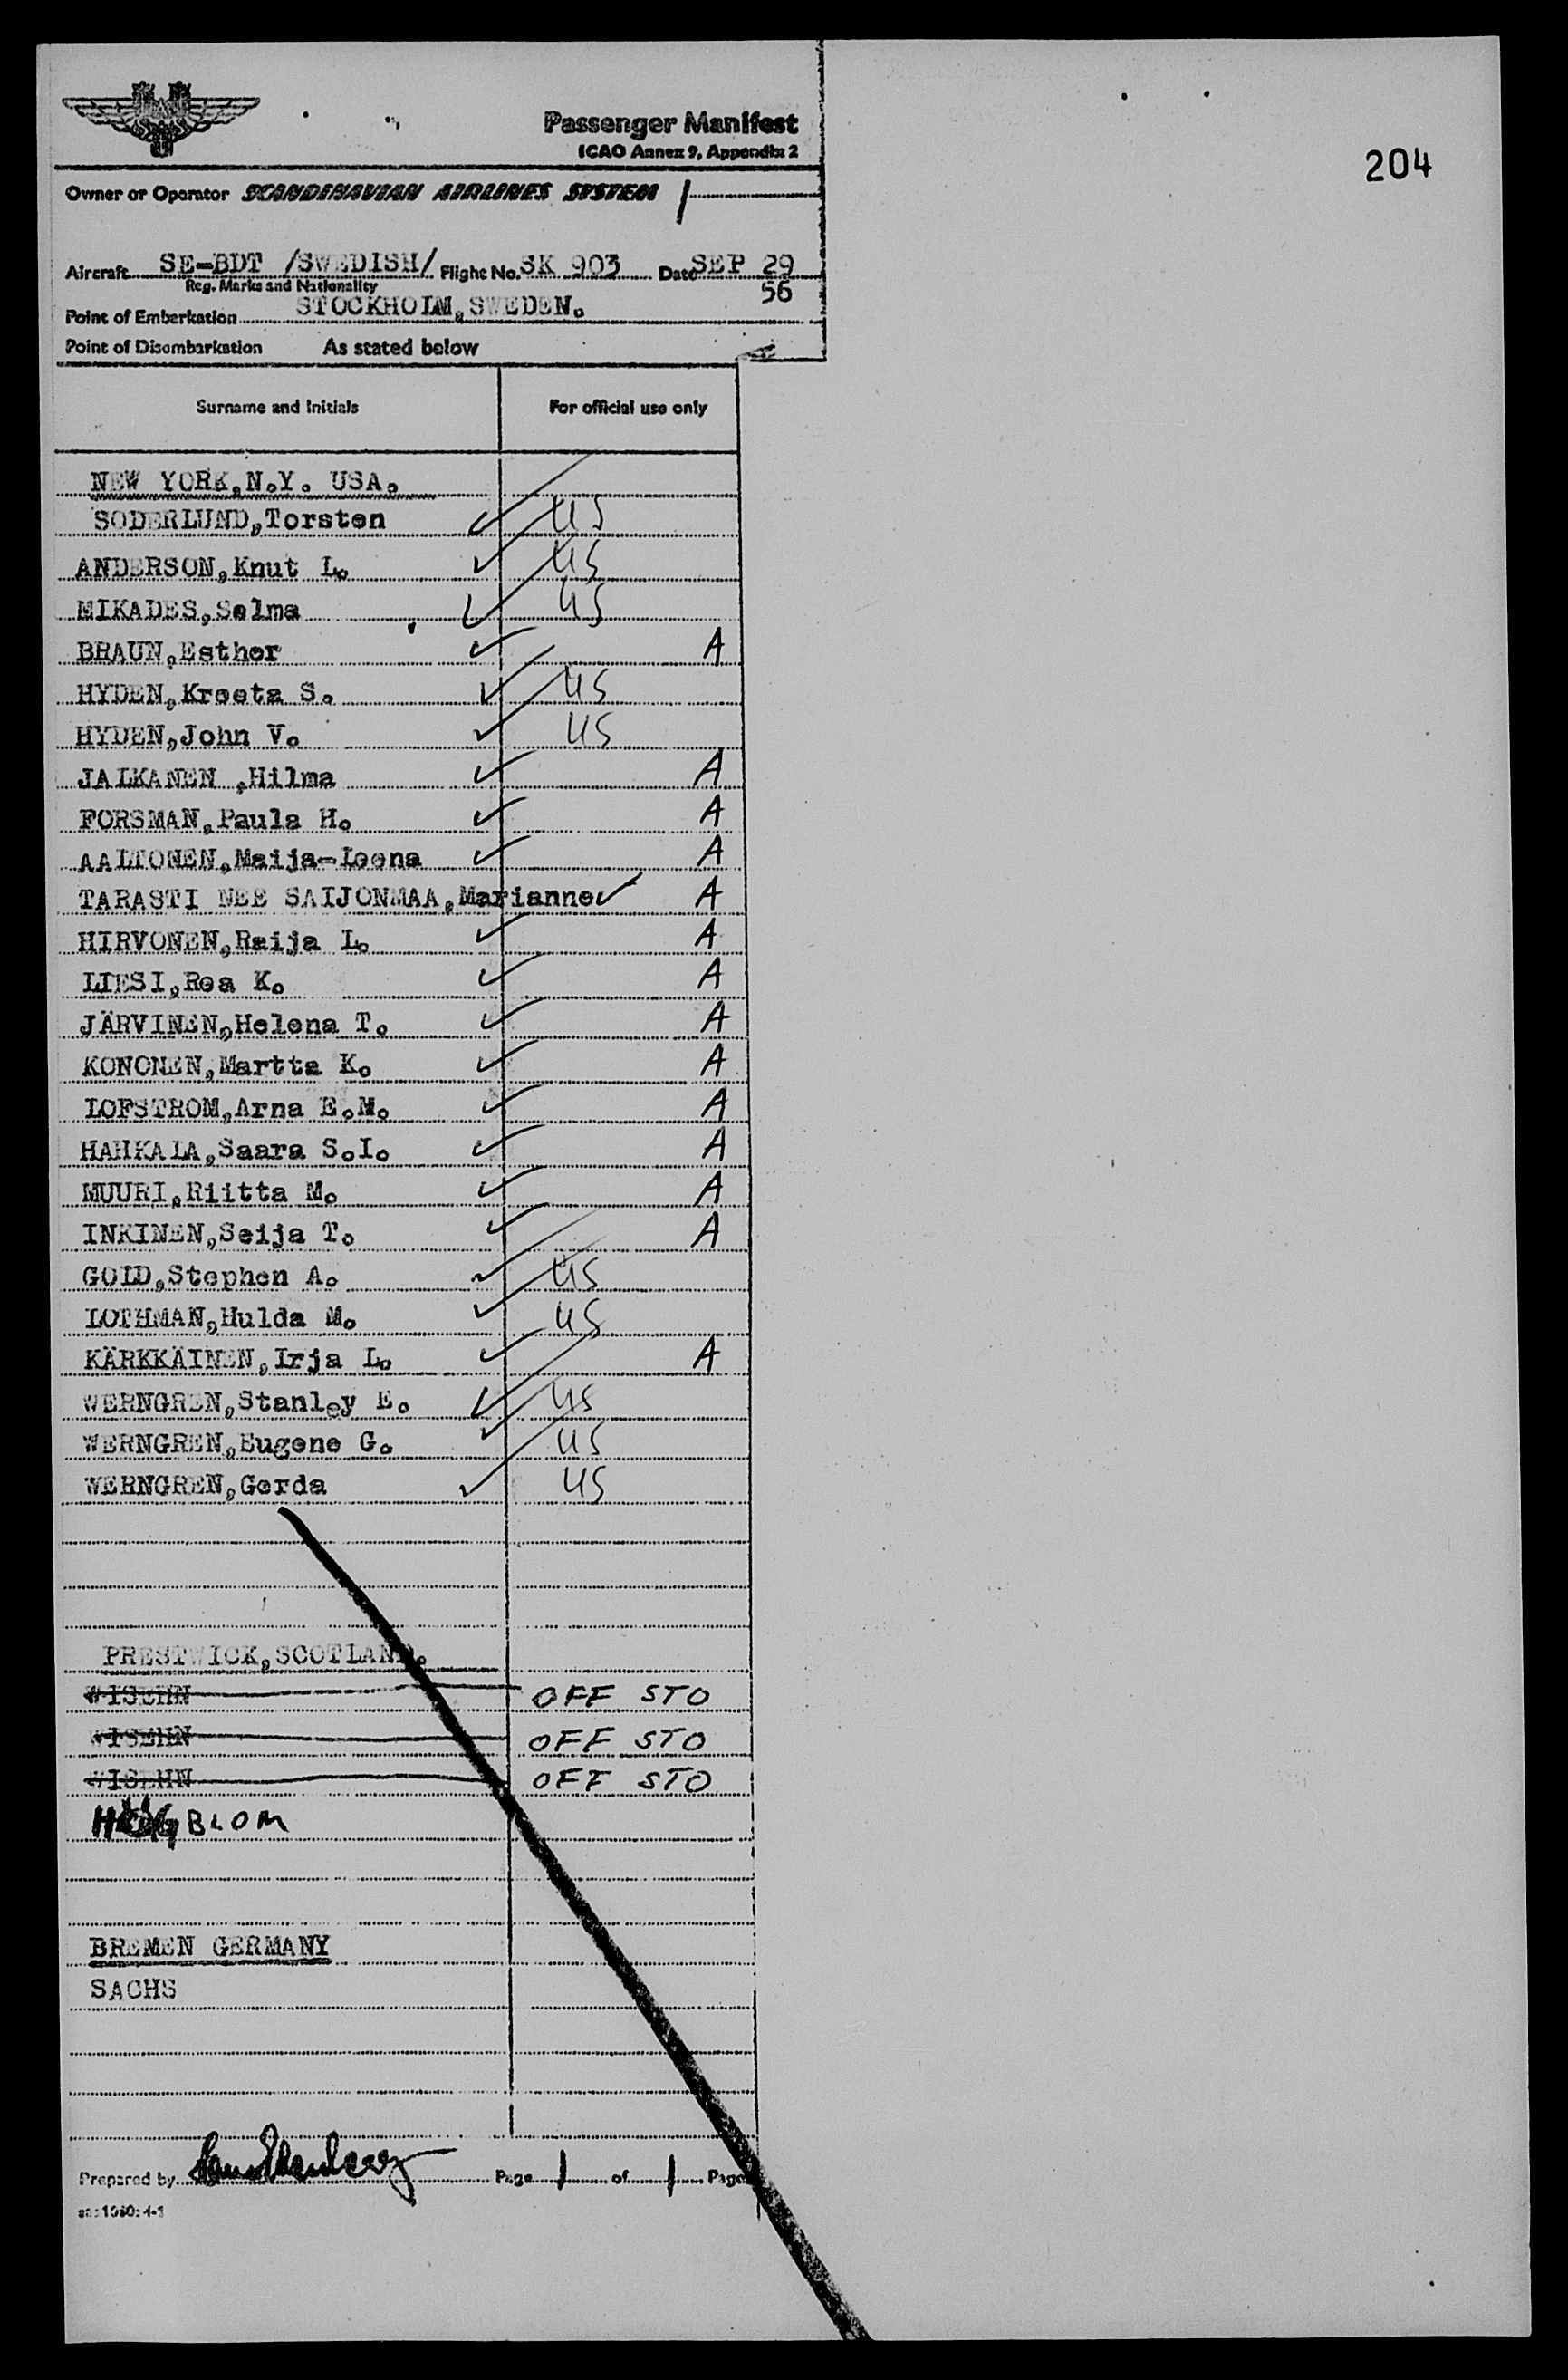 Passenger Manifest
ICAO Annex 9, Appendix 2
204
Owner or Operator SCANDINAVIAN AIRLINES SYSTEM
Aircraft SE-BDT /SWEDISH/ Flight No. SK 903 Date SEP 29
Reg. Marks and Nationality 56
Point of Embarkation STOCKHOLM,SWEDEN.
Point of Disembarkation As stated below
Surname and Initials For official use only
NEW YORK,N.Y. USA.
SODERLUND,Torsten ✓ US
ANDERSON,Knut L. ✓ US
MIKADES,Selma ✓ US
BRAUN,Esther ✓ A
HYDEN,Kreeta S. ✓ US
HYDEN,John V. ✓ US
JALKANEN ,Hilma ✓ A
FORSMAN,Paula H. ✓ A
AALTONEN,Maija-Leena ✓ A
TARASTI NEE SAIJONMAA,Marianne ✓ A
HIRVONEN,Raija L. ✓ A
LIESI,Rea K. ✓ A
JÄRVINEN,Helena T. ✓ A
KONONEN,Martta K. ✓ A
LOFSTROM,Arna E.M. ✓ A
HAHKALA,Saara S.I. ✓ A
MUURI,Riitta M. ✓ A
INKINEN,Seija T. ✓ A
GOLD,Stephen A. ✓ US
LOTHMAN,Hulda M. ✓ US
KÄRKKÄINEN,Irja L. ✓ A
WERNGREN,Stanley E. ✓ US
WERNGREN,Eugene G. ✓ US
WERNGREN,Gerda ✓ US
PRESTWICK,SCOTLAND.
WISEHN OFF STO
WISEHN OFF STO
WISEHN OFF STO
HÖGBLOM
BREMEN GERMANY
SACHS
Prepared by Page 1 of 1 Page